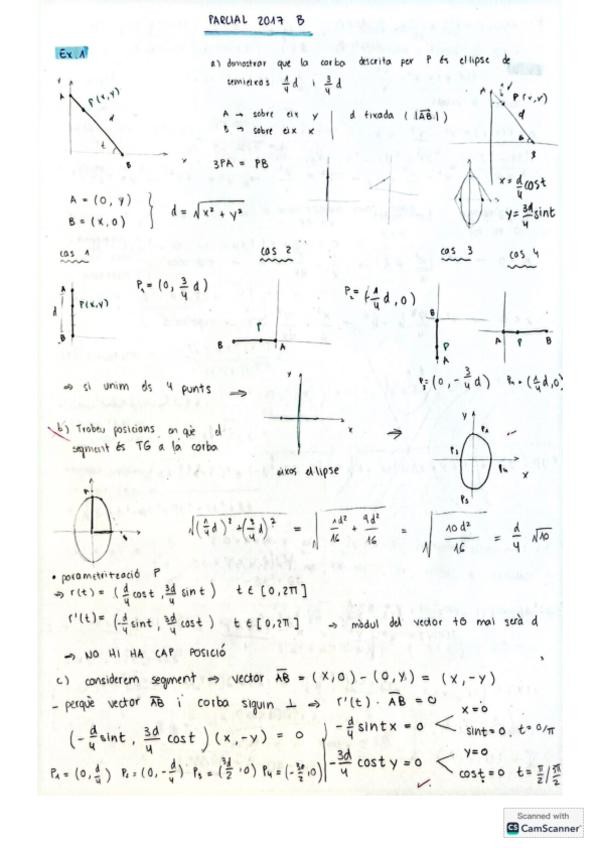 PARCIAL 2017 B
Ex.1
a) demostrar que la corba descrita per P és el·lipse de
semieixos 1/4 d i 3/4 d
A → sobre eix y
B → sobre eix x
d fixada (|AB|)
3PA = PB
A
P(x,y)
d
t
B
x
A
P(x,y)
d
B
x = d/4 cost
y = 3d/4 sint
A = (0, y)
B = (x, 0)
d = √x² + y²
cas 1
cas 2
cas 3
cas 4
A
P(x,y)
d
B
P₁ = (0, 3/4 d)
B
P
A
P₂ = (-1/4 d, 0)
B
P
A
A
P
B
P₃ = (0, -3/4 d)
P₄ = (1/4 d, 0)
⇒ si unim els 4 punts →
y
x
eixos el·lipse
→
y
P₂
P₁
P₄
P₃
x
b) Trobeu posicions en què el
segment és TG a la corba
√(1/4 d)² + (3/4 d)² = √1d²/16 + 9d²/16 = √10d²/16 = d/4 √10
• parametrització P
→ r(t) = (d/4 cost, 3d/4 sint) t ∈ [0,2π]
r'(t) = (-d/4 sint, 3d/4 cost) t ∈ [0,2π] → mòdul del vector tg mai serà d
→ NO HI HA CAP POSICIÓ
c) considerem segment → vector AB = (x,0) - (0,y) = (x,-y)
- perquè vector AB i corba siguin ⊥ → r'(t) · AB = 0
(-d/4 sint, 3d/4 cost)(x,-y) = 0
-d/4 sint x = 0 < x=0
sint=0. t=0/π
-3d/4 cost y = 0 < y=0
cost=0 t=π/2 / 3π/2
P₁ = (0, d/4) P₂ = (0, -d/4) P₃ = (3d/2, 0) P₄ = (-3d/2, 0)
Scanned with
CS CamScanner